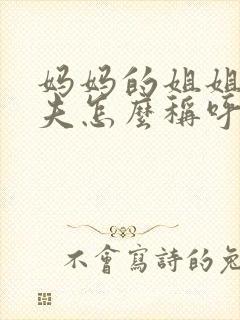 妈妈的姐姐
夫怎麼稱呼
不會寫詩的兔